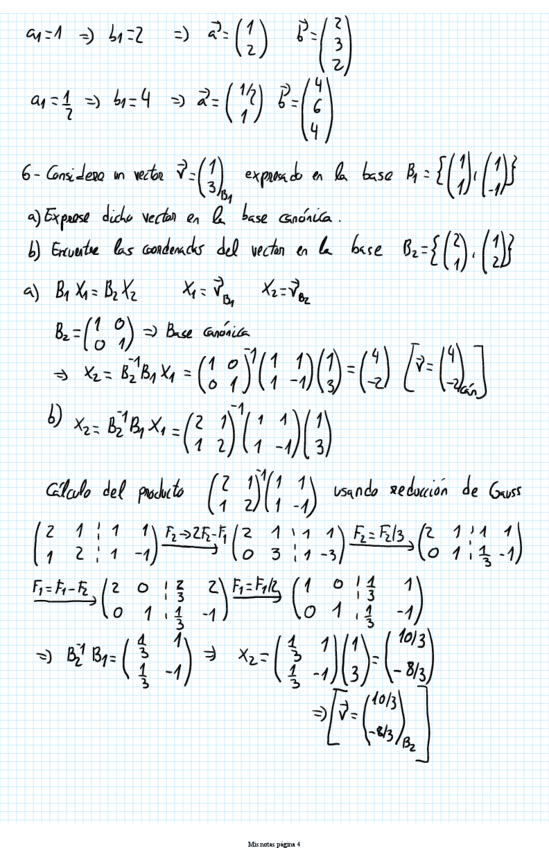 a₁=1 => b₁=2 => a⃗=(1 2) b⃗=(2 3 2)
a₁=1/2 => b₁=4 => a⃗=(1/2 1) b⃗=(4 6 4)
6- Considere un vector v⃗=(1 3)B₁ expresado en la base B₁={(1 1),(1 -1)}
a) Exprese dicho vector en la base canónica.
b) Encuentre las coordenadas del vector en la base B₂={(2 1),(1 2)}
a) B₁X₁=B₂X₂ X₁=v⃗B₁ X₂=v⃗B₂
B₂=(1 0; 0 1) => Base canónica
=> X₂=B₂⁻¹B₁X₁=(1 0; 0 1)⁻¹(1 1; 1 -1)(1 3)=(4 -2) [v⃗=(4 -2)cán]
b) X₂=B₂⁻¹B₁X₁=(2 1; 1 2)⁻¹(1 1; 1 -1)(1 3)
Cálculo del producto (2 1; 1 2)⁻¹(1 1; 1 -1) usando reducción de Gauss
(2 1 ¦ 1 1; 1 2 ¦ 1 -1) F₂→2F₂-F₁ (2 1 ¦ 1 1; 0 3 ¦ 1 -3) F₂=F₂/3 (2 1 ¦ 1 1; 0 1 ¦ 1/3 -1)
F₁=F₁-F₂ (2 0 ¦ 2/3 2; 0 1 ¦ 1/3 -1) F₁=F₁/2 (1 0 ¦ 1/3 1; 0 1 ¦ 1/3 -1)
=> B₂⁻¹B₁=(1/3 1; 1/3 -1) => X₂=(1/3 1; 1/3 -1)(1 3)=(10/3 -8/3)
=> [v⃗=(10/3 -8/3)B₂]
Mis notas página 4